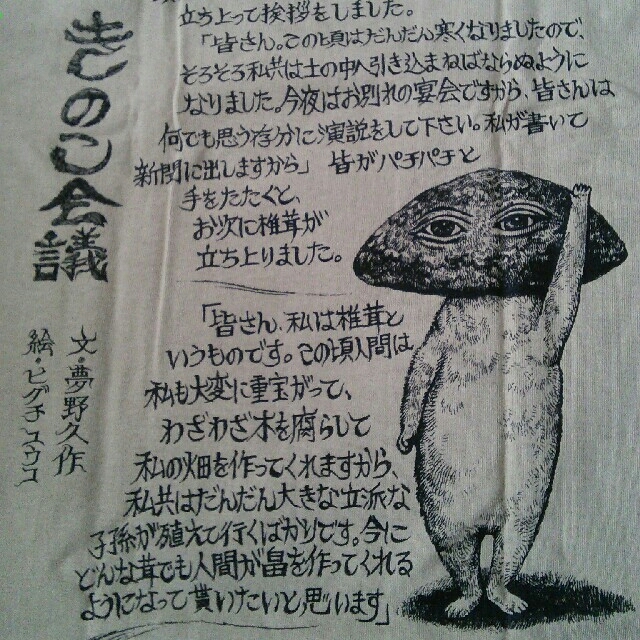 きのこ会議
文・夢野久作
絵・ヒグチユウコ
立ち上って挨拶をしました。
「皆さん。この頃はだんだん寒くなりましたので、
そろそろ私共は土の中へ引き込まねばならぬように
なりました。今夜はお別れの宴会ですから、皆さんは
何でも思う存分に演説をして下さい。私が書いて
新聞に出しますから」 皆がパチパチと
手をたたくと、
お次に椎茸が
立ち上りました。
「皆さん、私は椎茸と
いうものです。この頃人間は
私を大変に重宝がって、
わざわざ木を腐らして
私の畑を作ってくれますから、
私共はだんだん大きな立派な
子孫が殖えて行くばかりです。今に
どんな茸でも人間が畠を作ってくれる
ようになって貰いたいと思います」